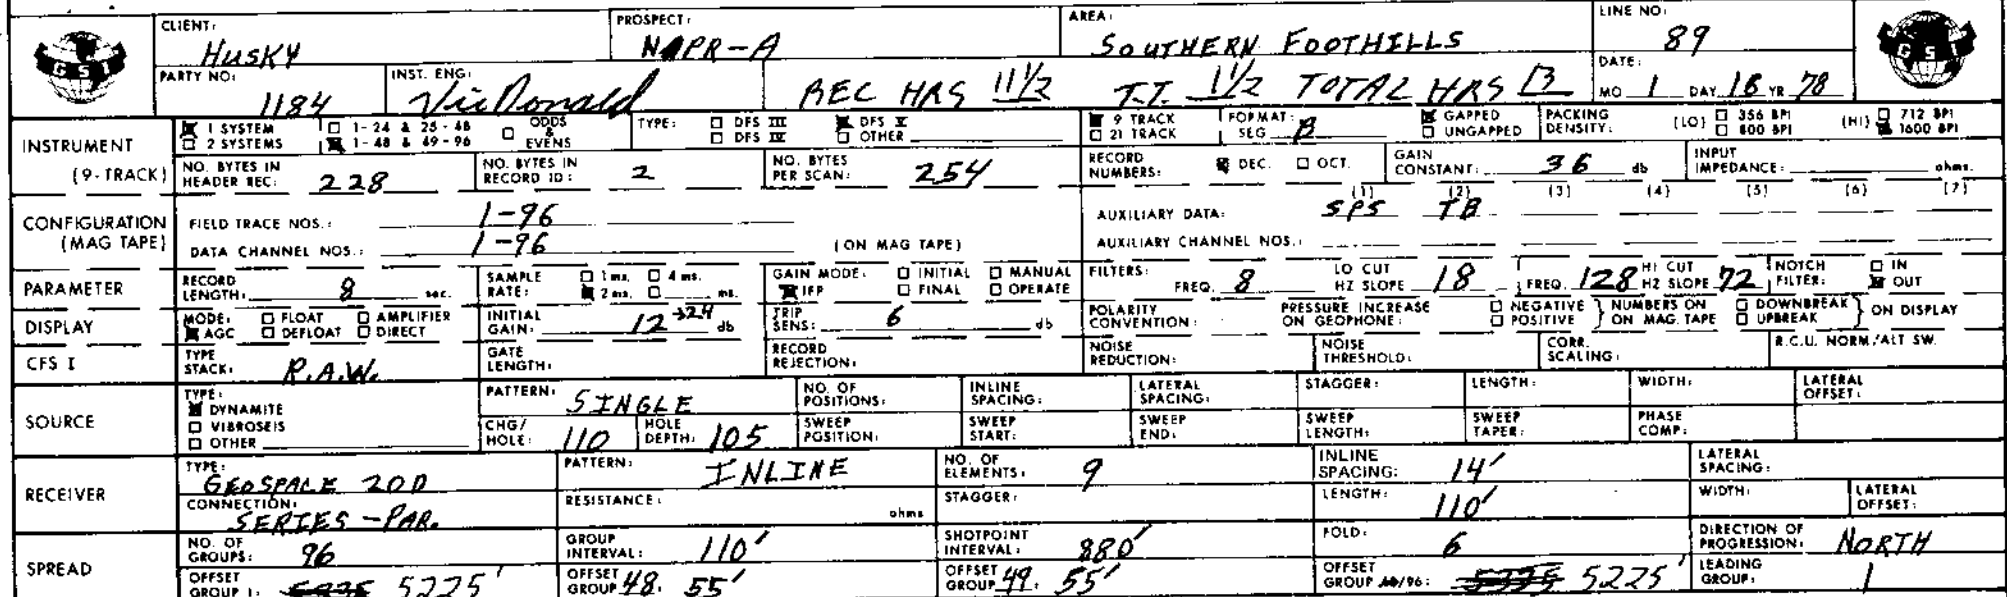 CLIENT: HUSKY PROSPECT: NAPR-A AREA: SOUTHERN FOOTHILLS LINE NO: 89
GSI GSI
PARTY NO: 1184 INST. ENG: Vic Donald REC HRS 11 1/2 T.T. 1 1/2 TOTAL HRS 13 DATE: MO 1 DAY 18 YR 78
INSTRUMENT (9-TRACK) ☒ 1 SYSTEM ☐ 1-24 & 25-48 ☐ ODDS & EVENS TYPE: ☐ DFS III ☒ DFS V ☒ 9 TRACK FORMAT: SEG B ☒ GAPPED PACKING DENSITY: (LO) ☐ 356 BPI (HI) ☐ 712 BPI
☐ 2 SYSTEMS ☒ 1-48 & 49-96 ☐ DFS IV ☐ OTHER ☐ 21 TRACK ☐ UNGAPPED ☐ 800 BPI ☒ 1600 BPI
NO. BYTES IN HEADER REC: 228 NO. BYTES IN RECORD ID: 2 NO. BYTES PER SCAN: 254 RECORD NUMBERS: ☒ DEC. ☐ OCT. GAIN CONSTANT: 36 db INPUT IMPEDANCE: ohms.
CONFIGURATION (MAG TAPE) (1) (2) (3) (4) (5) (6) (7)
FIELD TRACE NOS.: 1-96 AUXILIARY DATA: SPS TB
DATA CHANNEL NOS.: 1-96 (ON MAG TAPE) AUXILIARY CHANNEL NOS.:
PARAMETER RECORD LENGTH: 8 sec. SAMPLE RATE: ☐ 1 ms. ☐ 4 ms. ☒ 2 ms. ☐ ms. GAIN MODE: ☐ INITIAL ☐ MANUAL ☒ IFP ☐ FINAL ☐ OPERATE FILTERS: FREQ. 8 LO CUT HZ SLOPE 18 FREQ. 128 HI CUT HZ SLOPE 72 NOTCH FILTER: ☐ IN ☒ OUT
DISPLAY MODE: ☐ FLOAT ☐ AMPLIFIER ☒ AGC ☐ DEFLOAT ☐ DIRECT INITIAL GAIN: 12 →24 db TRIP SENS: 6 db POLARITY CONVENTION: PRESSURE INCREASE ON GEOPHONE: ☐ NEGATIVE ☐ POSITIVE } NUMBERS ON ON MAG. TAPE ☐ DOWNBREAK ☐ UPBREAK } ON DISPLAY
CFS I TYPE STACK: R.A.W. GATE LENGTH: RECORD REJECTION: NOISE REDUCTION: NOISE THRESHOLD: CORR. SCALING: R.C.U. NORM./ALT SW.
SOURCE TYPE: ☒ DYNAMITE ☐ VIBROSEIS ☐ OTHER PATTERN: SINGLE NO. OF POSITIONS: INLINE SPACING: LATERAL SPACING: STAGGER: LENGTH: WIDTH: LATERAL OFFSET:
CHG/HOLE: 110 HOLE DEPTH: 105 SWEEP POSITION: SWEEP START: SWEEP END: SWEEP LENGTH: SWEEP TAPER: PHASE COMP:
RECEIVER TYPE: GEOSPACE 20D PATTERN: INLINE NO. OF ELEMENTS: 9 INLINE SPACING: 14' LATERAL SPACING:
CONNECTION: SERIES-PAR. RESISTANCE: ohms STAGGER: LENGTH: 110' WIDTH: LATERAL OFFSET:
SPREAD NO. OF GROUPS: 96 GROUP INTERVAL: 110' SHOTPOINT INTERVAL: 880' FOLD: 6 DIRECTION OF PROGRESSION: NORTH
OFFSET GROUP 1: 5225' OFFSET GROUP 48: 55' OFFSET GROUP 49: 55' OFFSET GROUP /96: 5225' LEADING GROUP: 1